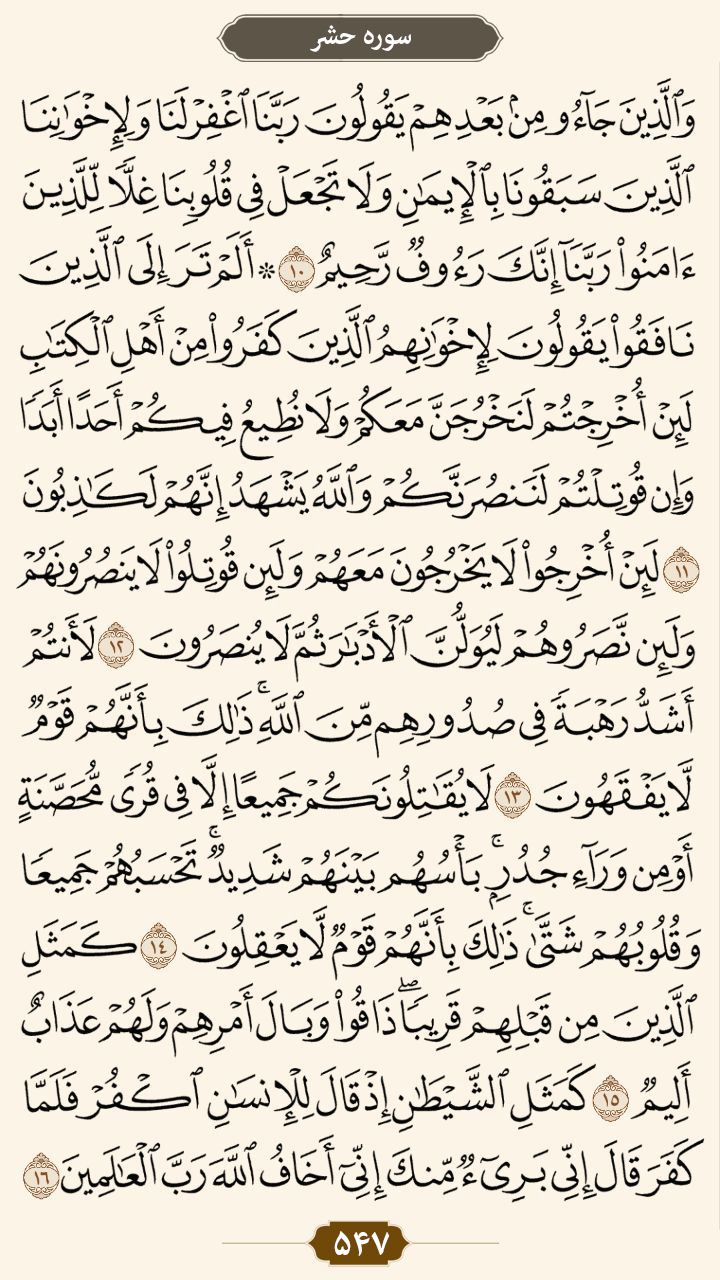 سوره حشر
وَٱلَّذِينَ جَآءُو مِنۢ بَعْدِهِمْ يَقُولُونَ رَبَّنَا ٱغْفِرْ لَنَا وَلِإِخْوَٰنِنَا
ٱلَّذِينَ سَبَقُونَا بِٱلْإِيمَٰنِ وَلَا تَجْعَلْ فِى قُلُوبِنَا غِلًّا لِّلَّذِينَ
ءَامَنُوا۟ رَبَّنَآ إِنَّكَ رَءُوفٌ رَّحِيمٌ ١٠ * أَلَمْ تَرَ إِلَى ٱلَّذِينَ
نَافَقُوا۟ يَقُولُونَ لِإِخْوَٰنِهِمُ ٱلَّذِينَ كَفَرُوا۟ مِنْ أَهْلِ ٱلْكِتَٰبِ
لَئِنْ أُخْرِجْتُمْ لَنَخْرُجَنَّ مَعَكُمْ وَلَا نُطِيعُ فِيكُمْ أَحَدًا أَبَدًا
وَإِن قُوتِلْتُمْ لَنَنصُرَنَّكُمْ وَٱللَّهُ يَشْهَدُ إِنَّهُمْ لَكَٰذِبُونَ
١١ لَئِنْ أُخْرِجُوا۟ لَا يَخْرُجُونَ مَعَهُمْ وَلَئِن قُوتِلُوا۟ لَا يَنصُرُونَهُمْ
وَلَئِن نَّصَرُوهُمْ لَيُوَلُّنَّ ٱلْأَدْبَٰرَ ثُمَّ لَا يُنصَرُونَ ١٢ لَأَنتُمْ
أَشَدُّ رَهْبَةً فِى صُدُورِهِم مِّنَ ٱللَّهِ ۚ ذَٰلِكَ بِأَنَّهُمْ قَوْمٌ
لَّا يَفْقَهُونَ ١٣ لَا يُقَٰتِلُونَكُمْ جَمِيعًا إِلَّا فِى قُرًى مُّحَصَّنَةٍ
أَوْ مِن وَرَآءِ جُدُرٍۭ ۚ بَأْسُهُم بَيْنَهُمْ شَدِيدٌ ۚ تَحْسَبُهُمْ جَمِيعًا
وَقُلُوبُهُمْ شَتَّىٰ ۚ ذَٰلِكَ بِأَنَّهُمْ قَوْمٌ لَّا يَعْقِلُونَ ١٤ كَمَثَلِ
ٱلَّذِينَ مِن قَبْلِهِمْ قَرِيبًا ۖ ذَاقُوا۟ وَبَالَ أَمْرِهِمْ وَلَهُمْ عَذَابٌ
أَلِيمٌ ١٥ كَمَثَلِ ٱلشَّيْطَٰنِ إِذْ قَالَ لِلْإِنسَٰنِ ٱكْفُرْ فَلَمَّا
كَفَرَ قَالَ إِنِّى بَرِىٓءٌ مِّنكَ إِنِّىٓ أَخَافُ ٱللَّهَ رَبَّ ٱلْعَٰلَمِينَ ١٦
۵۴۷